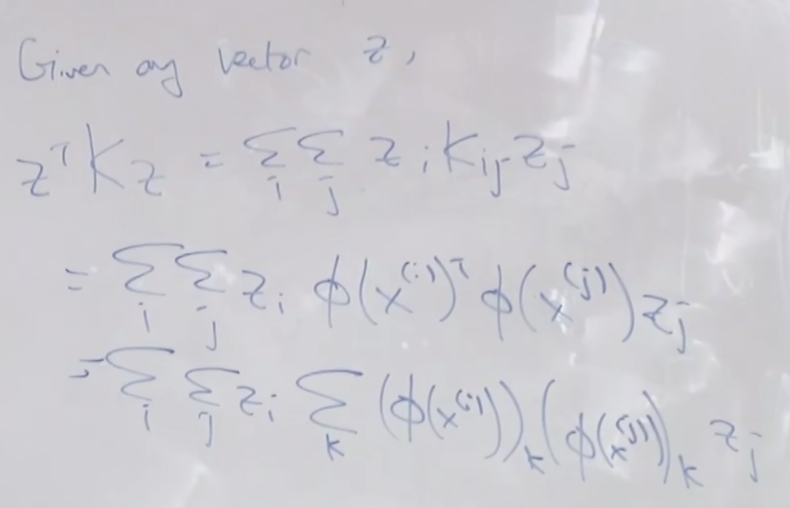 Given any vector z,
zᵀKz = Σ_i Σ_j z_i K_ij z_j
= Σ_i Σ_j z_i ϕ(x⁽ⁱ⁾)ᵀ ϕ(x⁽ʲ⁾) z_j
= Σ_i Σ_j z_i Σ_k (ϕ(x⁽ⁱ⁾))_k (ϕ(x⁽ʲ⁾))_k z_j